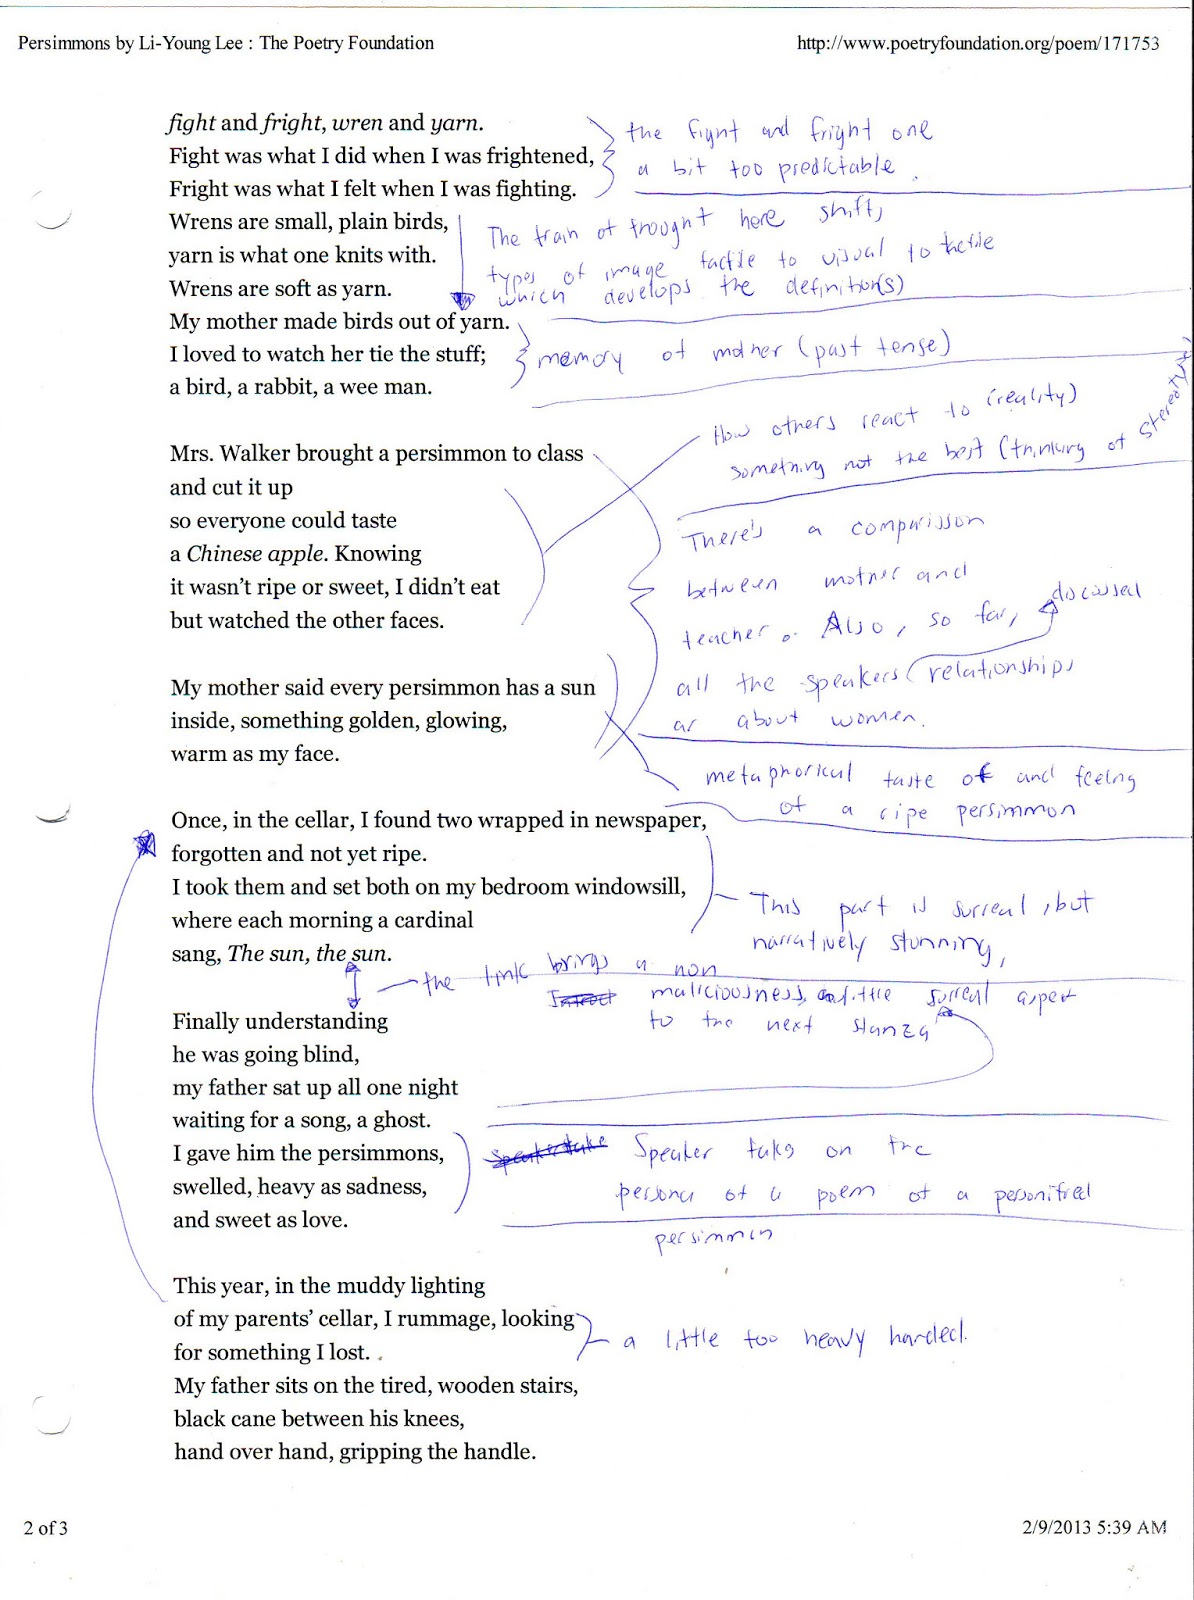 Persimmons by Li-Young Lee : The Poetry Foundation
http://www.poetryfoundation.org/poem/171753
fight and fright, wren and yarn.
Fight was what I did when I was frightened,
Fright was what I felt when I was fighting.
the fignt and fright one
a bit too predictable.
Wrens are small, plain birds,
yarn is what one knits with.
Wrens are soft as yarn.
The train of trought here shifts
types of image tactile to visual to tactile
which develops the definition(s)
My mother made birds out of yarn.
I loved to watch her tie the stuff;
a bird, a rabbit, a wee man.
memory of mother (past tense)
Mrs. Walker brought a persimmon to class
and cut it up
so everyone could taste
a Chinese apple. Knowing
it wasn't ripe or sweet, I didn't eat
but watched the other faces.
How others react to (reality)
something not the best (thinking of stereotype)
There's a comparisson
between mother and
teacher. Also, so far, discussed
all the speakers relationships
ar about women.
My mother said every persimmon has a sun
inside, something golden, glowing,
warm as my face.
metaphorical taste of and feeling
of a ripe persimmon
Once, in the cellar, I found two wrapped in newspaper,
forgotten and not yet ripe.
I took them and set both on my bedroom windowsill,
where each morning a cardinal
sang, The sun, the sun.
This part is surreal, but
narratively stunning,
the link brings a non
maliciousness, surreal aspect
to the next stanza
Finally understanding
he was going blind,
my father sat up all one night
waiting for a song, a ghost.
I gave him the persimmons,
swelled, heavy as sadness,
and sweet as love.
Speaker take Speaker taks on the
persona of a poem of a personified
persimmin
This year, in the muddy lighting
of my parents' cellar, I rummage, looking
for something I lost.
a little too heavy handed.
My father sits on the tired, wooden stairs,
black cane between his knees,
hand over hand, gripping the handle.
2 of 3
2/9/2013 5:39 AM